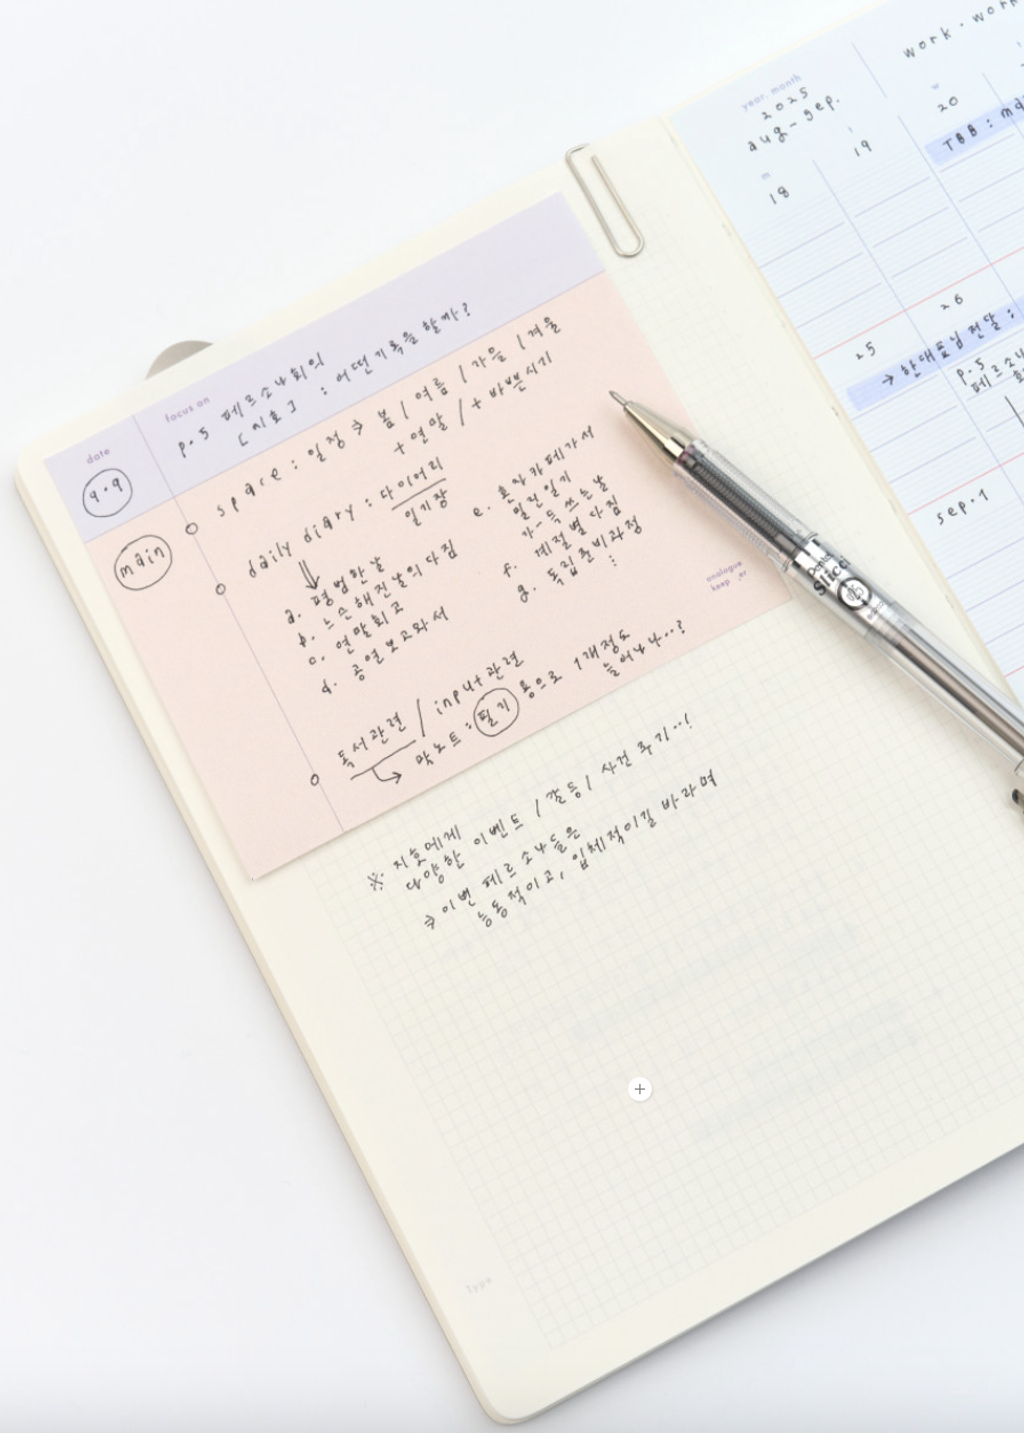 date
9.9
focus on
p.5 페르소나회의
[지호] : 어떤 기록을 할까?
main
space : 일정 ⇒ 봄 / 여름 / 가을 / 겨울
+ 연말 / + 바쁜시기
daily diary : 다이어리
일기장
a. 평범한날
b. 느슨해진날의 다짐
c. 연말회고
d. 공연보고와서
e. 혼자카페가서
밀린일기
가-득 쓰는날
f. 계절별다짐
g. 독립준비과정
⋮
독서관련 / input관련
→ 막노트 : 필기 용으로 1개정도
늘어나나..?
analogue
keeper
※ 지호에게
다양한 이벤트 / 갈등 / 사건 주기..!
⇒ 이번 페르소나들은
능동적이고, 입체적이길 바라며
Type
year. month
2025
aug-sep.
work. work
m
18
19
w
20
TBB :
25
26
→ 한대표님전달 :
p.5
페르소나
sep.1